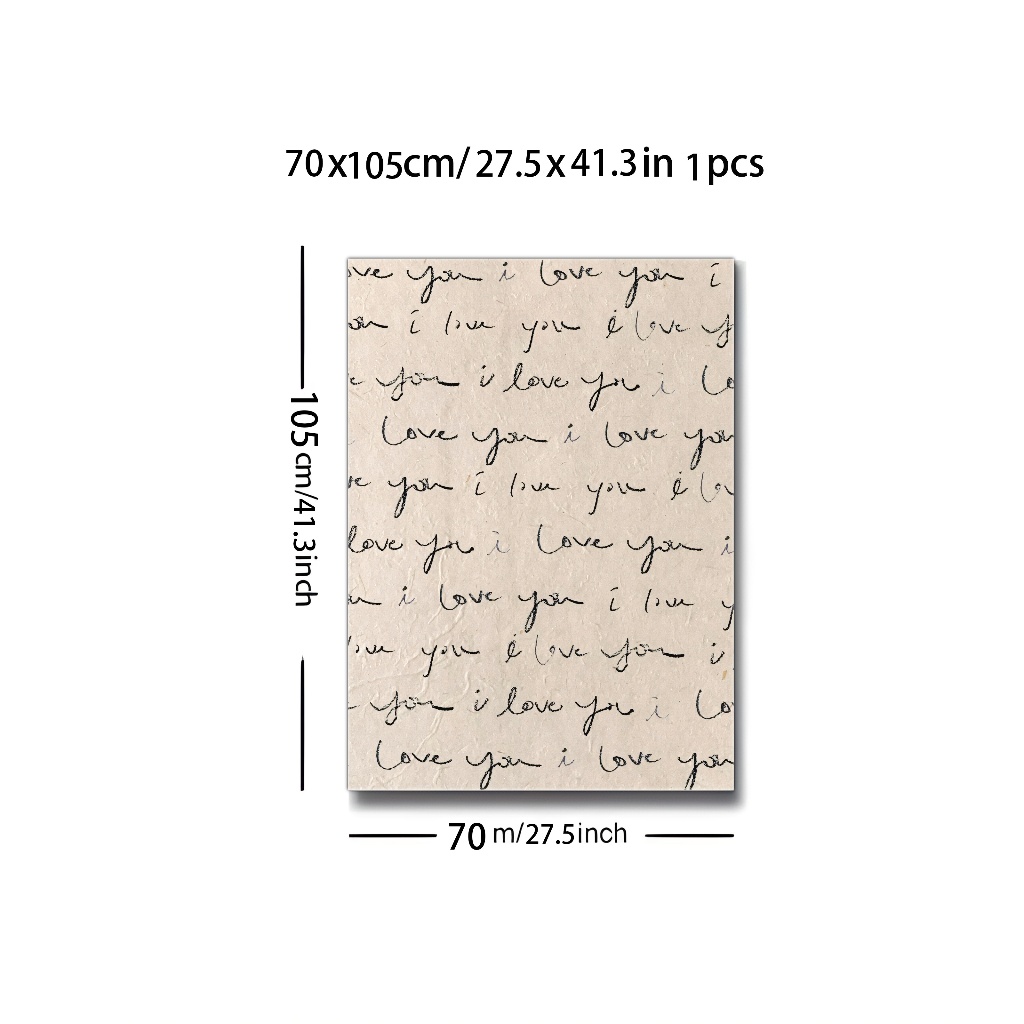 70x105cm/27.5x41.3in 1pcs
105cm/41.3inch
ove you i love you i
ou i love you i love y
e you i love you i lo
love you i love you
ve you i love you i lov
love you i love you i
ou i love you i love y
love you i love you i
you i love you i lo
love you i love you
70 m/27.5inch